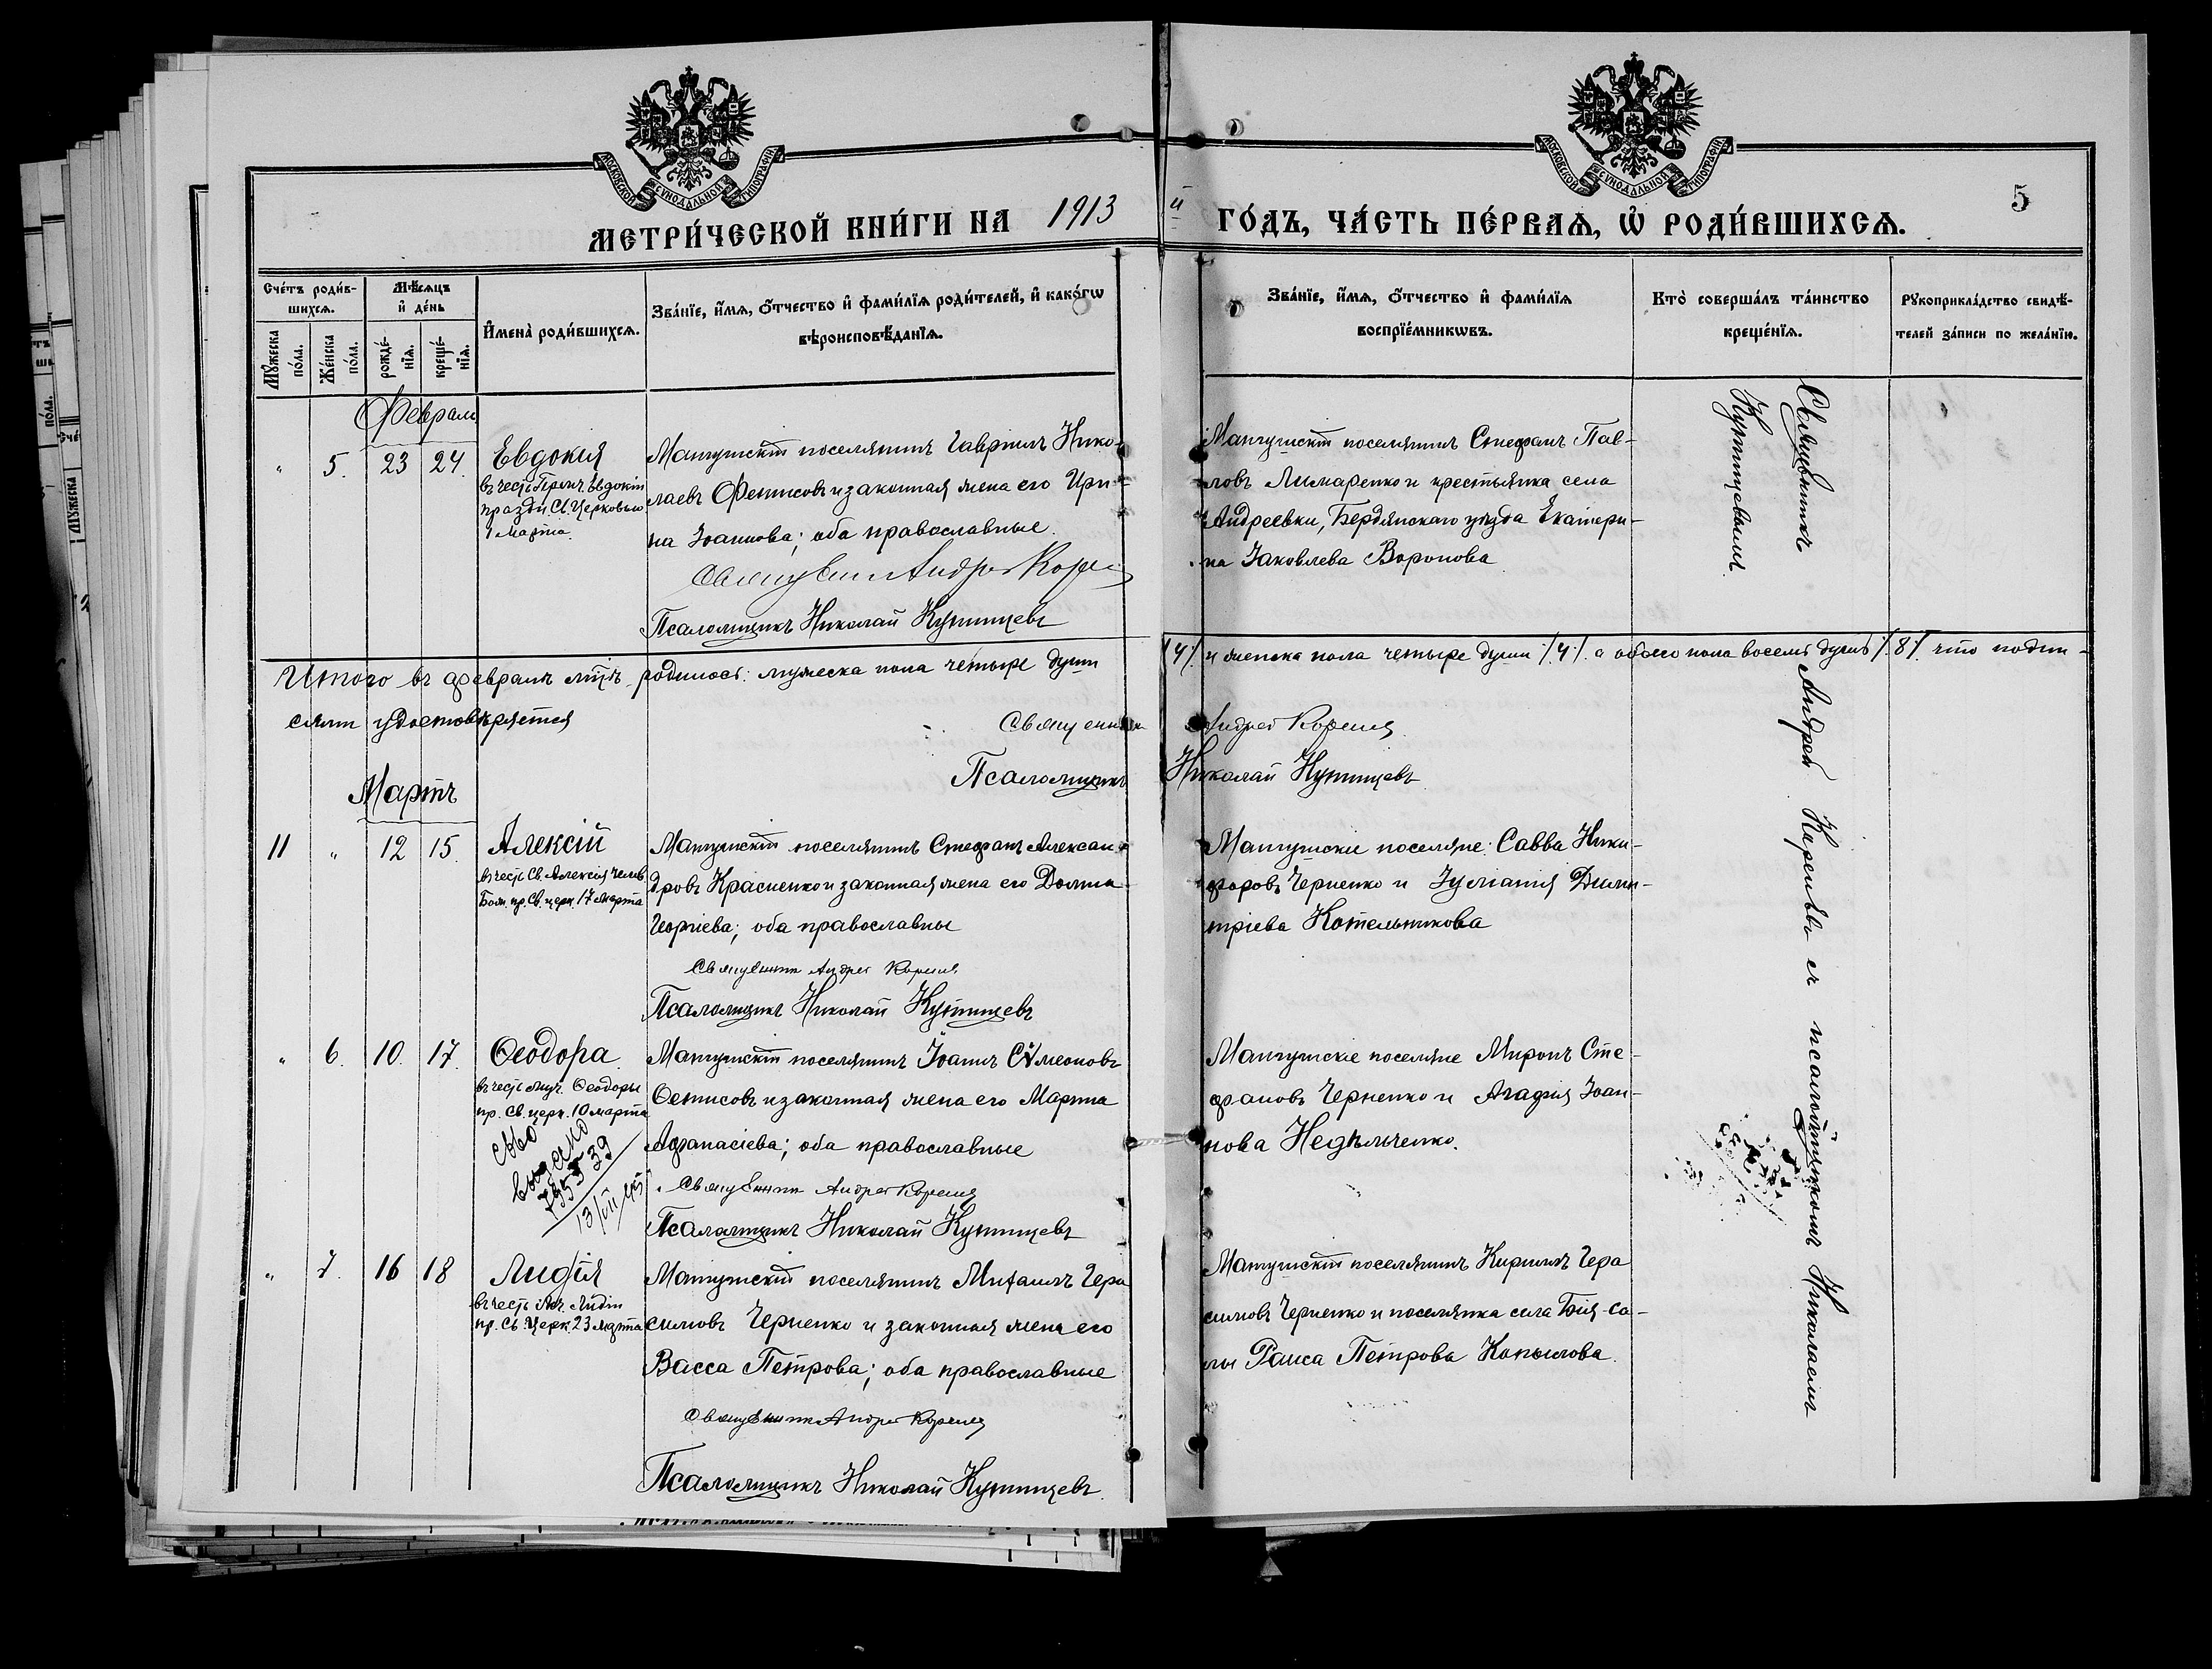 МОСКОВСКОЙ СѴНОДАЛЬНОЙ ТИПОГРАФІИ
МОСКОВСКОЙ СѴНОДАЛЬНОЙ ТИПОГРАФІИ
5
МЕТРИ́ЧЕСКОЙ КНИ́ГИ НА 1913 й ГО́ДЪ, ЧА́СТЬ ПЕ́РВАѦ, Ѡ҆ РОДИ́ВШИХСѦ.
Сче́тъ роди́в-
шихсѧ.
Мѣ́сѧцъ
и҆ де́нь
Мꙋ́жеска
по́ла.
Же́нска
по́ла.
рожде́-
нїѧ.
креще́-
нїѧ.
И҆мена̀ роди́вшихсѧ.
Зва́нїе, и҆́мѧ, ѻ҆́тчество и҆ фами́лїѧ роди́телей, и҆ како́гѡ
вѣроисповѣ́данїѧ.
Зва́нїе, и҆́мѧ, ѻ҆́тчество и҆ фами́лїѧ
воспрїе́мникѡвъ.
Кто̀ соверша́лъ та́инство
креще́нїѧ.
Рꙋкоприкла́дство свидѣ́-
телей за́писи по жела́нїю.
Февраль
" 5. 23 24 Евдокія
въ честь Препм. Евдокіи
праздн. Св. Церковью
1 марта.
Мангушскій поселянинъ Гавріилъ Нико-
лаевъ Фенисовъ и законная жена его Ири-
на Іоаннова; оба православные
Священникъ Андрей Кореля
Псаломщикъ Николай Купинцевъ
Мангушскій поселянинъ Стефанъ Пав-
ловъ Лимаренко и крестьянка села
Андреевки, Бердянскаго уѣзда Екатери-
на Іаковлева Воронова
Итого въ февралѣ мцѣ родилось: мужеска пола четыре души /4/ и женска пола четыре души /4/. а обоего пола восемь душъ /8/ что подпи-
сями удостовѣряется
Священникъ Андрей Кореля
Псаломщикъ Николай Купинцевъ
Мартъ
11 " 12 15. Алексій
въ честь Св. Алексія челов.
Бож. пр. Св. церк. 17 марта
Мангушскій поселянинъ Стефанъ Алексан-
дровъ Красненко и законная жена его Домна
Георгіева; оба православны
Священникъ Андрей Кореля
Псаломщикъ Николай Купинцевъ
Мангушскіе поселяне: Савва Ники-
форовъ Черненко и Іуліанія Дими-
тріева Котельникова
" 6. 10. 17. Ѳеодора
въ честь муч. Ѳеодоры
пр. Св. церк. 10 марта
Св-во
выдано
Мангушскій поселянинъ Іоаннъ Сѵмеоновъ
Ѳенисовъ и законная жена его Марѳа
Аѳанасіева; оба православные
Священникъ Андрей Кореля
Псаломщикъ Николай Купинцевъ
Мангушскіе поселяне Миронъ Сте-
фановъ Черненко и Агафія Іоан-
нова Недѣльченко.
" 7. 16 18 Лидія
въ честь Мч. Лидіи
пр. Св. Церк. 23 марта
Мангушскій поселянинъ Михаилъ Гера
симовъ Черненко и законная жена его
Васса Петрова; оба православные
Священникъ Андрей Кореля
Псаломщикъ Николай Купинцевъ.
Мангушскій поселянинъ Кириллъ Гера
симовъ Черненко и поселянка села Бія-са-
лы Раиса Петрова Копылова.
Священникъ Андрей Корельъ съ псаломщикомъ Николаемъ
Купинцевымъ.